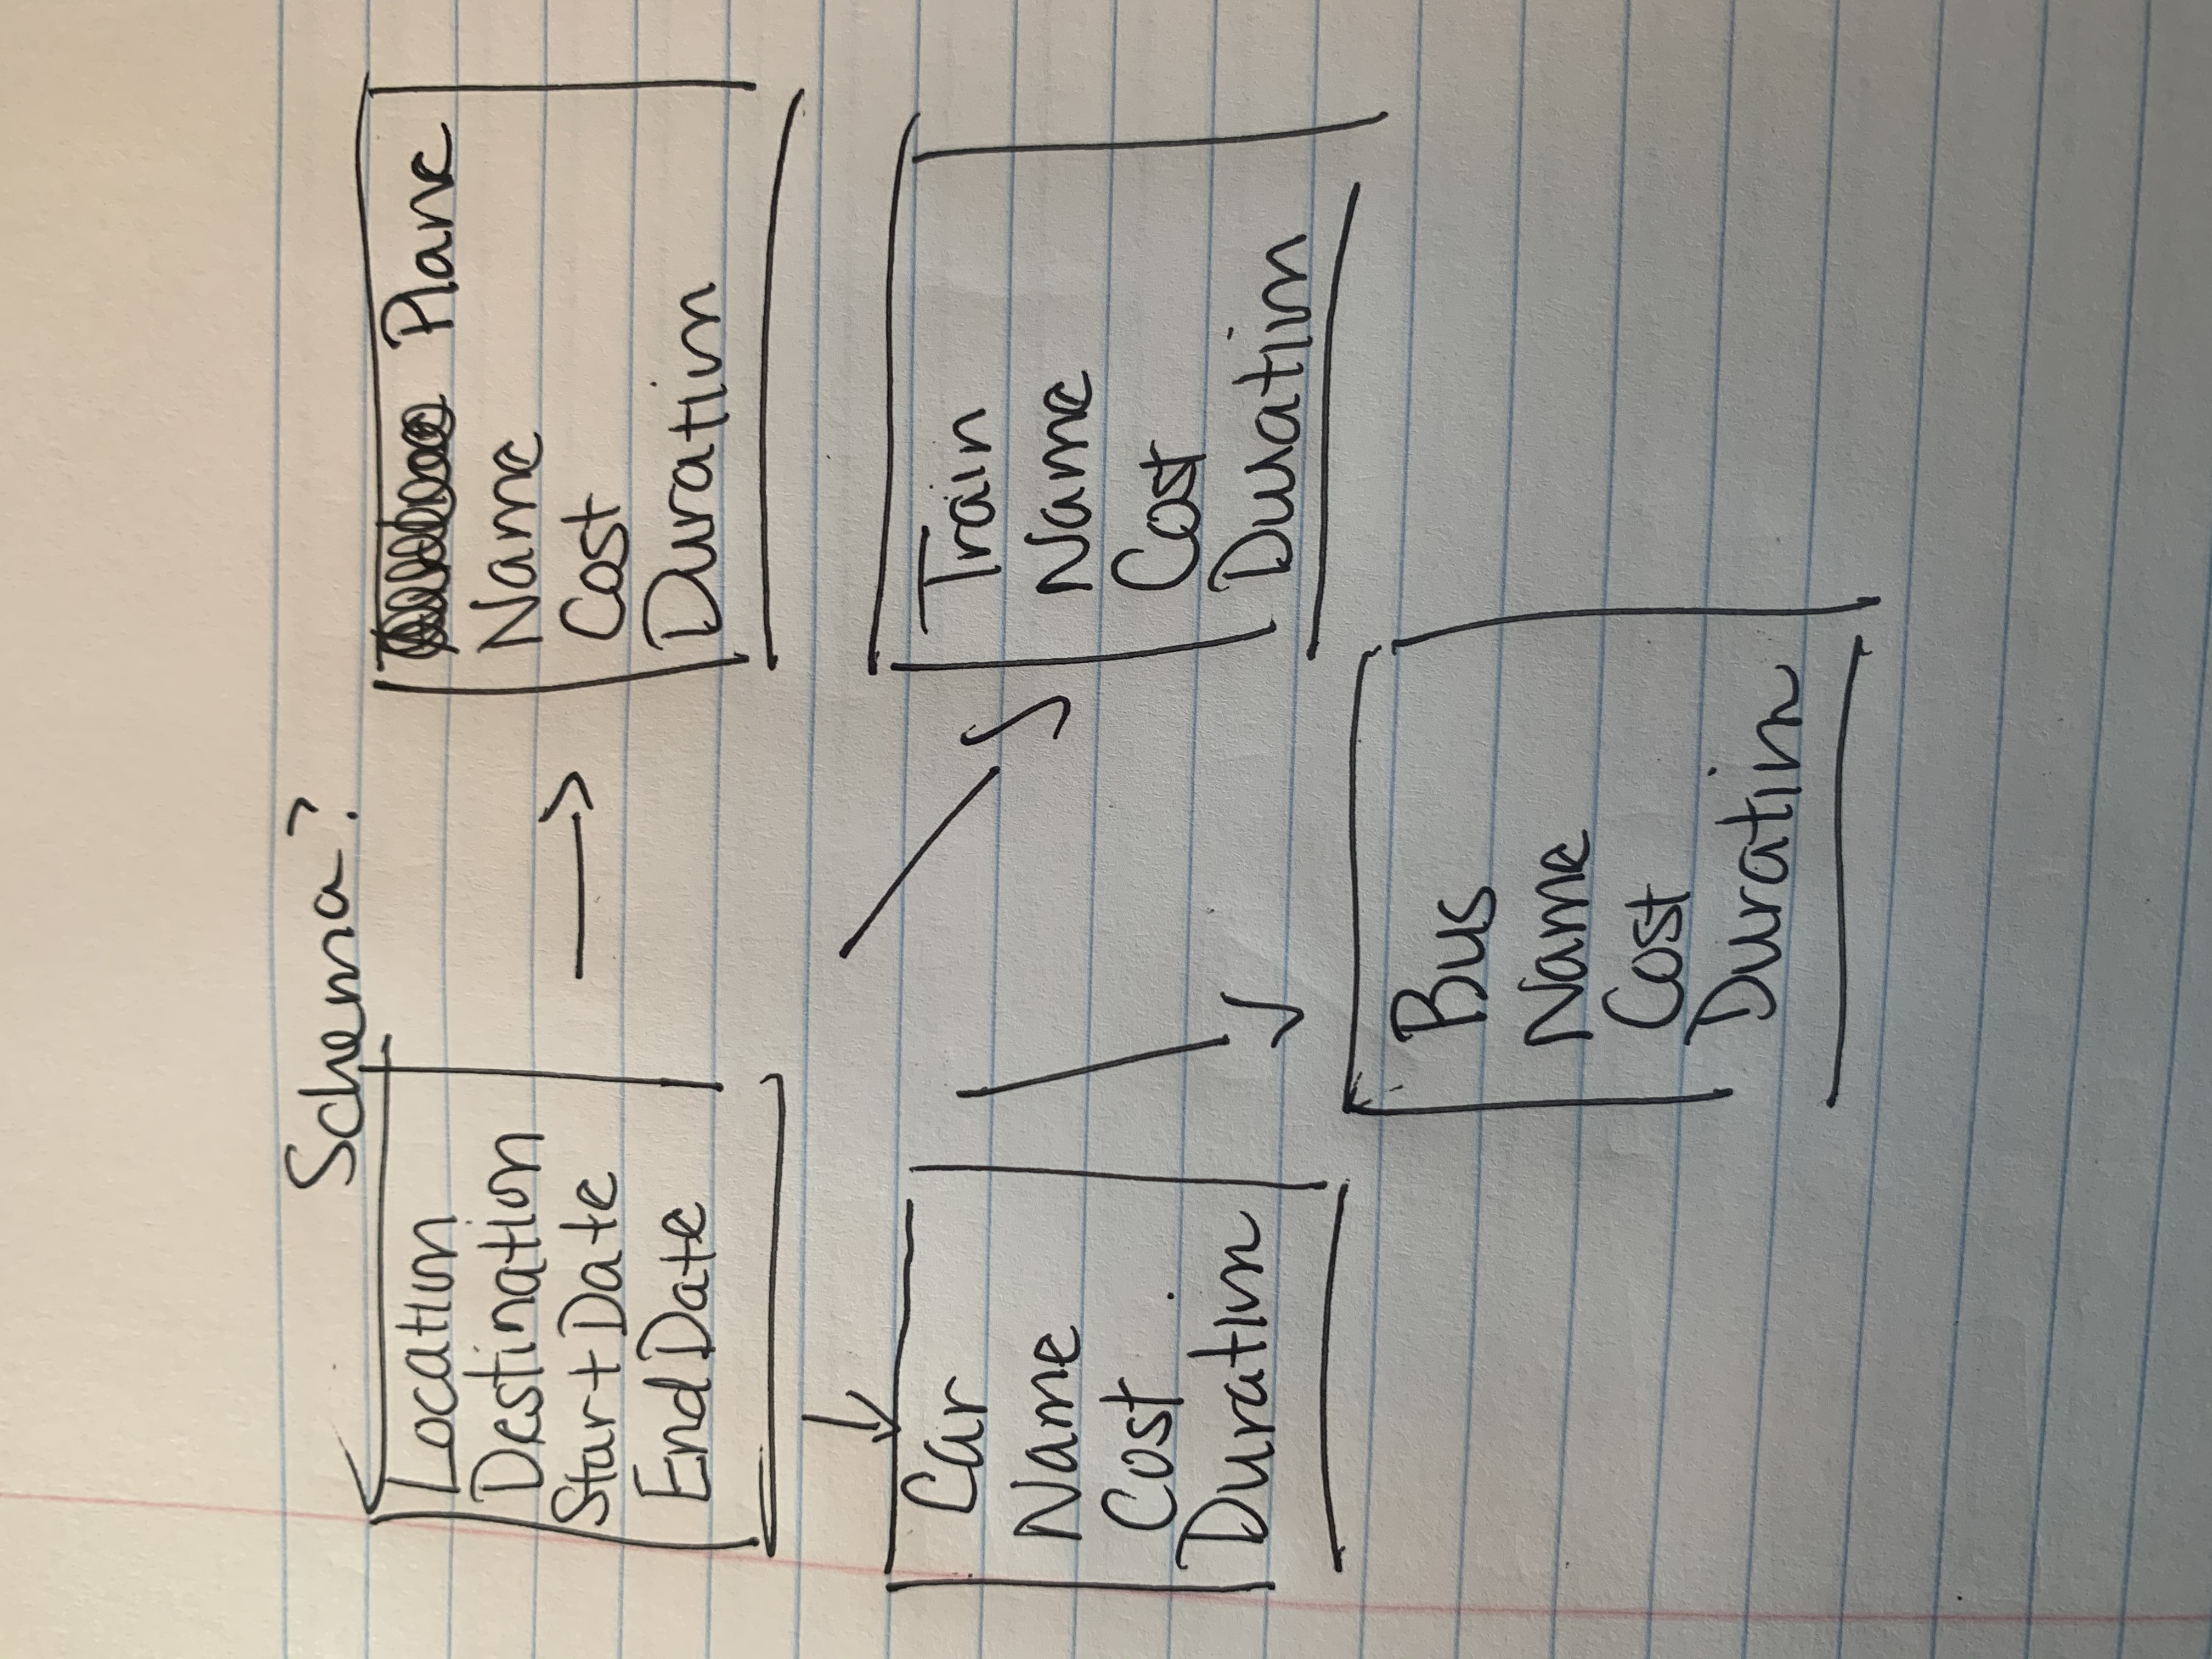 Schema?
Location
Destination
Start Date
End Date
Plane
Name
Cost
Duration
Car
Name
Cost
Duration
Train
Name
Cost
Duration
Bus
Name
Cost
Duration